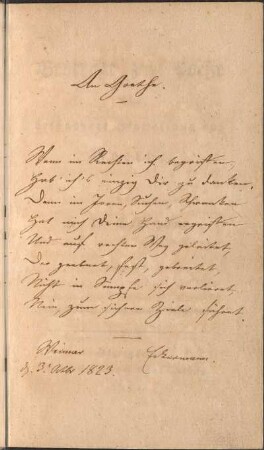 An Goethe.
Wenn im Rechten ich begriffen,
Hab' ich's einzig Dir zu danken,
Denn im Irren, Suchen, Schwanken
Hat mich Deine Hand ergriffen
Und auf rechten Weg geleitet,
Der gebaut, fest, gebreitet,
Nicht in Sümpfe sich verlieret,
Nein, zum sichern Ziele führet.
Weimar
d. 3. Octbr 1823.
Eckermann.